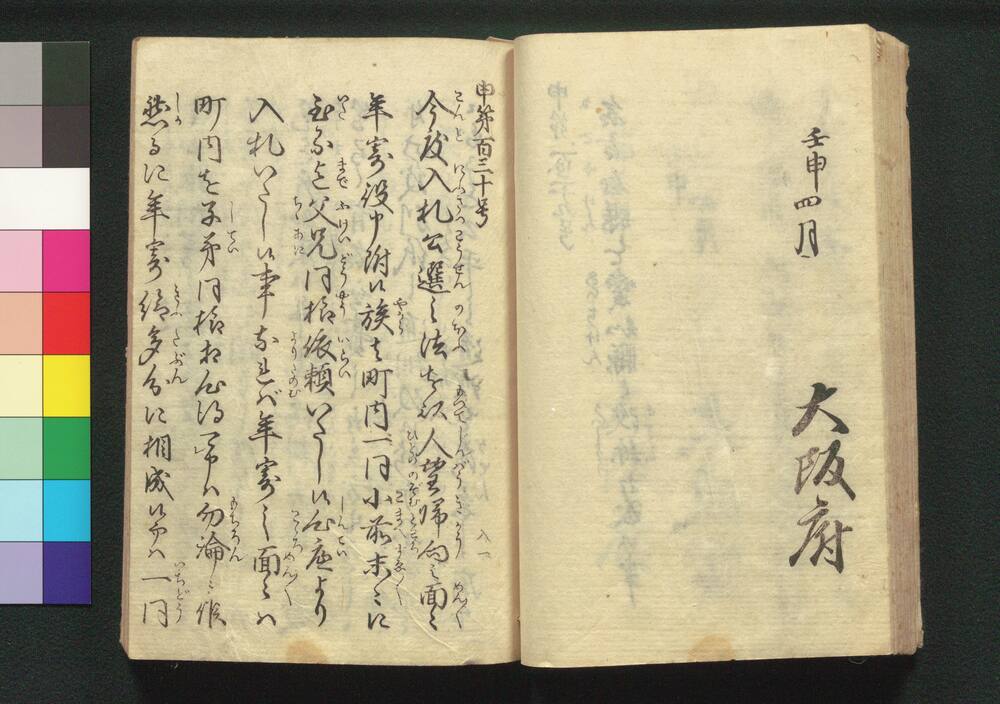 壬申四月
大阪府
申第百三十号
今度入札公選之法を以人望帰向之面々
年寄役申附候族は町内一同小前末々に
至る迄父兄同様依頼いたし候心底より
入札いたし候事なれば年寄之面々は
町内を子弟同様相心得可申は勿論之儀
然るに年寄給多分に相成候ては一同